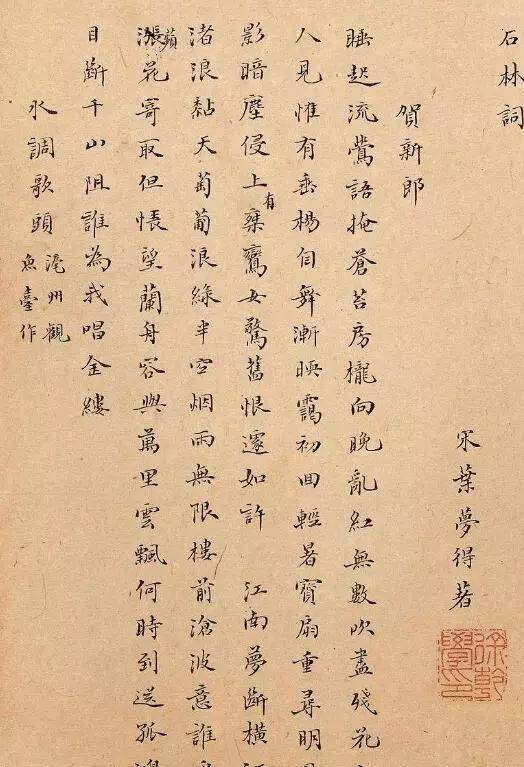 石林詞
宋葉夢得著
徐乾學印
賀新郎
睡起流鶯語掩蒼苔房櫳向晚亂紅無數吹盡殘花
人見惟有垂楊自舞漸暎靄初回輕暑寶扇重尋明
影暗塵侵上有乘鸞女驚舊恨遽如許 江南夢斷橫
渚浪黏天葡萄浪綠半空烟雨無限樓前滄波意誰
漲蘋花寄取但悵望蘭舟容與萬里雲飄何時到送孤鴻
目斷千山阻誰為我唱金縷
水調歌頭 濠州觀魚臺作